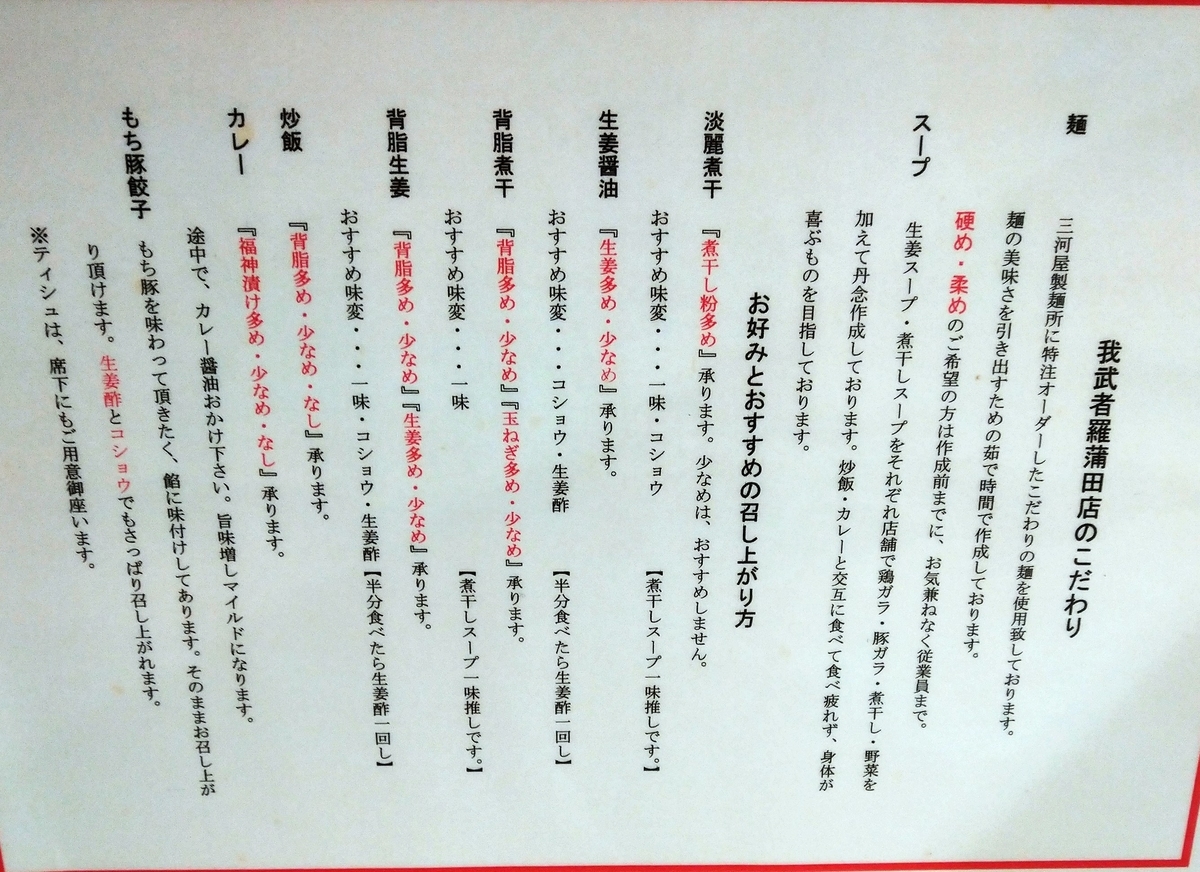 我武者羅蒲田店のこだわり
麺
三河屋製麺所に特注オーダーしたこだわりの麺を使用致しております。
麺の美味さを引き出すための茹で時間で作成しております。
硬め・柔めのご希望の方は作成前までに、お気兼ねなく従業員まで。
スープ
生姜スープ・煮干しスープをそれぞれ店舗で鶏ガラ・豚ガラ・煮干し・野菜を
加えて丹念作成しております。炒飯・カレーと交互に食べて食べ疲れず、身体が
喜ぶものを目指しております。
お好みとおすすめの召し上がり方
淡麗煮干 『煮干し粉多め』承ります。少なめは、おすすめしません。
おすすめ味変・・・一味・コショウ 【煮干しスープ一味推しです。】
生姜醤油 『生姜多め・少なめ』承ります。
おすすめ味変・・・コショウ・生姜酢 【半分食べたら生姜酢一回し】
背脂煮干 『背脂多め・少なめ』『玉ねぎ多め・少なめ』承ります。
おすすめ味変・・・一味 【煮干しスープ一味推しです。】
背脂生姜 『背脂多め・少なめ』『生姜多め・少なめ』承ります。
おすすめ味変・・・一味・コショウ・生姜酢【半分食べたら生姜酢一回し】
炒飯 『背脂多め・少なめ・なし』承ります。
カレー 『福神漬け多め・少なめ・なし』承ります。
途中で、カレー醤油おかけ下さい。旨味増しマイルドになります。
もち豚餃子 もち豚を味わって頂きたく、餡に味付けしてあります。そのままお召し上が
り頂けます。生姜酢とコショウでもさっぱり召し上がれます。
※ティシュは、席下にもご用意御座います。